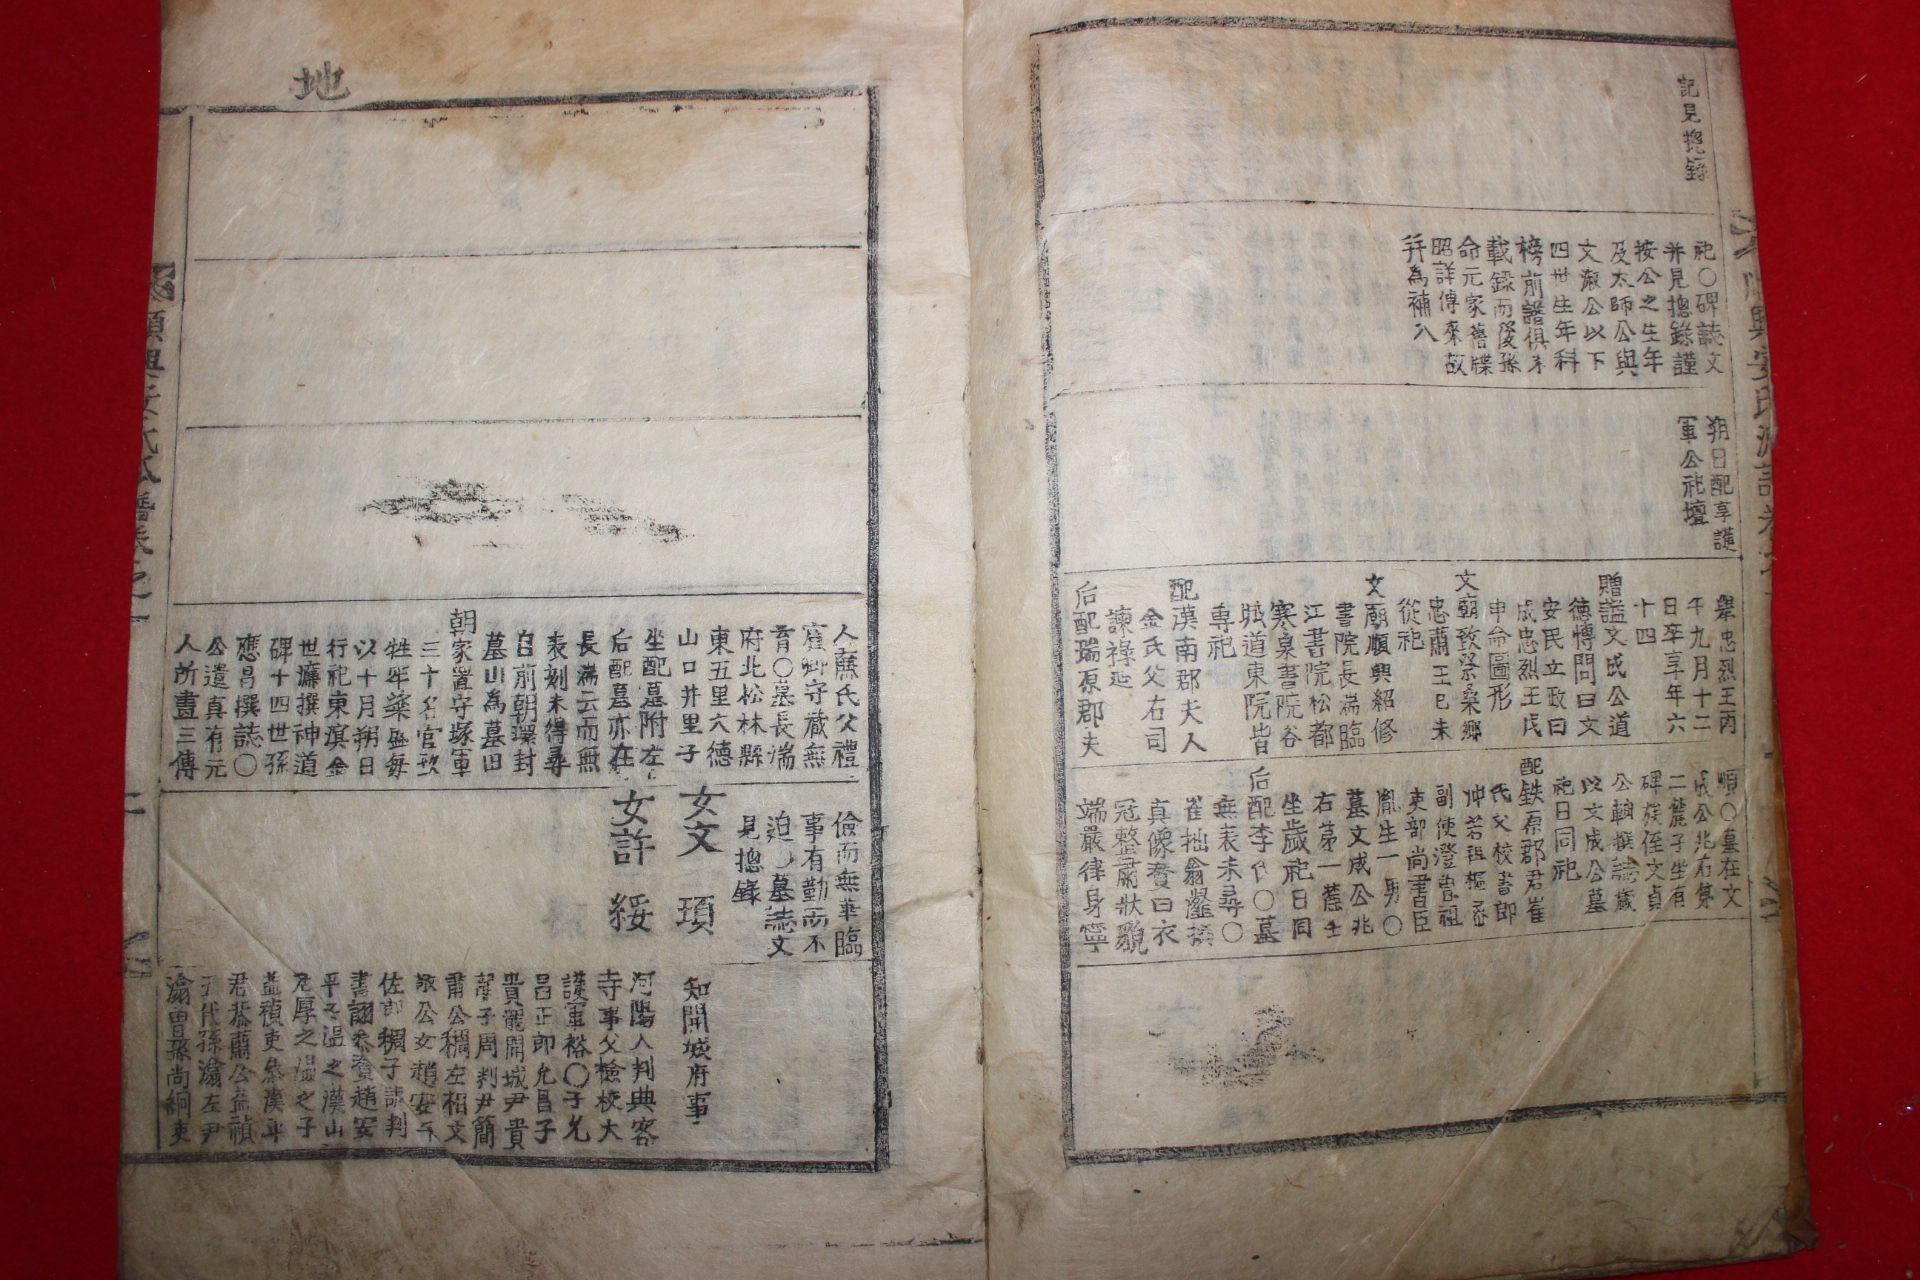 記見摠錄
祀〇碑誌文
并見摠錄謹
按公之生年
及太師公與
文淑公以下
四世生年科
榜前譜俱未
載錄而後孫
命元家舊牒
昭詳傳來故
并為補入
朔日配享護
軍公祀壇
舉忠烈王丙
午九月十二
日卒享年六
十四
贈謚文成公道
德博問曰文
安民立政曰
成忠烈王戊
申命圖形
文廟致祭桑鄉
忠肅王己未
從祀
文廟順興紹修
書院長湍臨
江書院松都
寒泉書院谷
城道東院皆
專祀
配漢南郡夫人
金氏父右司
諫祿延
后配瑞原郡夫
順〇墓在文
成公兆右第
二麓子坐有
碑族侄文貞
公軸撰誌歲
以文成公墓
祀日同祀
配鉄原郡君崔
氏父校書郎
冲若祖樞密
副使澄曾祖
吏部尚書臣
胤生一男〇
墓文成公兆
右第一舊壬
坐歲祀日同
后配李氏〇墓
無表未尋〇
崔拙翁瀣撰
真像賛曰衣
冠整肅狀貌
端嚴律身寧
地
人廉氏父禮
賓卿守藏無
育〇墓長湍
府北松林縣
東五里六德
山口井里子
坐配墓附左
后配墓亦在
長湍云而無
表刻未得尋
自前朝環封
墓山為墓田
朝家置守塚軍
三十名官致
牲牢粢盛每
以十月朔日
行祀東濱金
世濂撰神道
碑十四世孫
應昌撰誌〇
公遺真有元
人所畫三傳
儉而無華臨
事有勤而不
迫〇墓誌文
見摠錄
女文 頊
女許 綏
知開城府事
河陽人判典客
寺事父檢校大
護軍裕〇子允
昌正郎允昌子
貴龍開城尹貴
龍子周判尹簡
肅公稠左相文
敬公女趙安平
佐郎稠子詡判
書詡參賛趙安
平子溫之漢山
君厚之溫之子